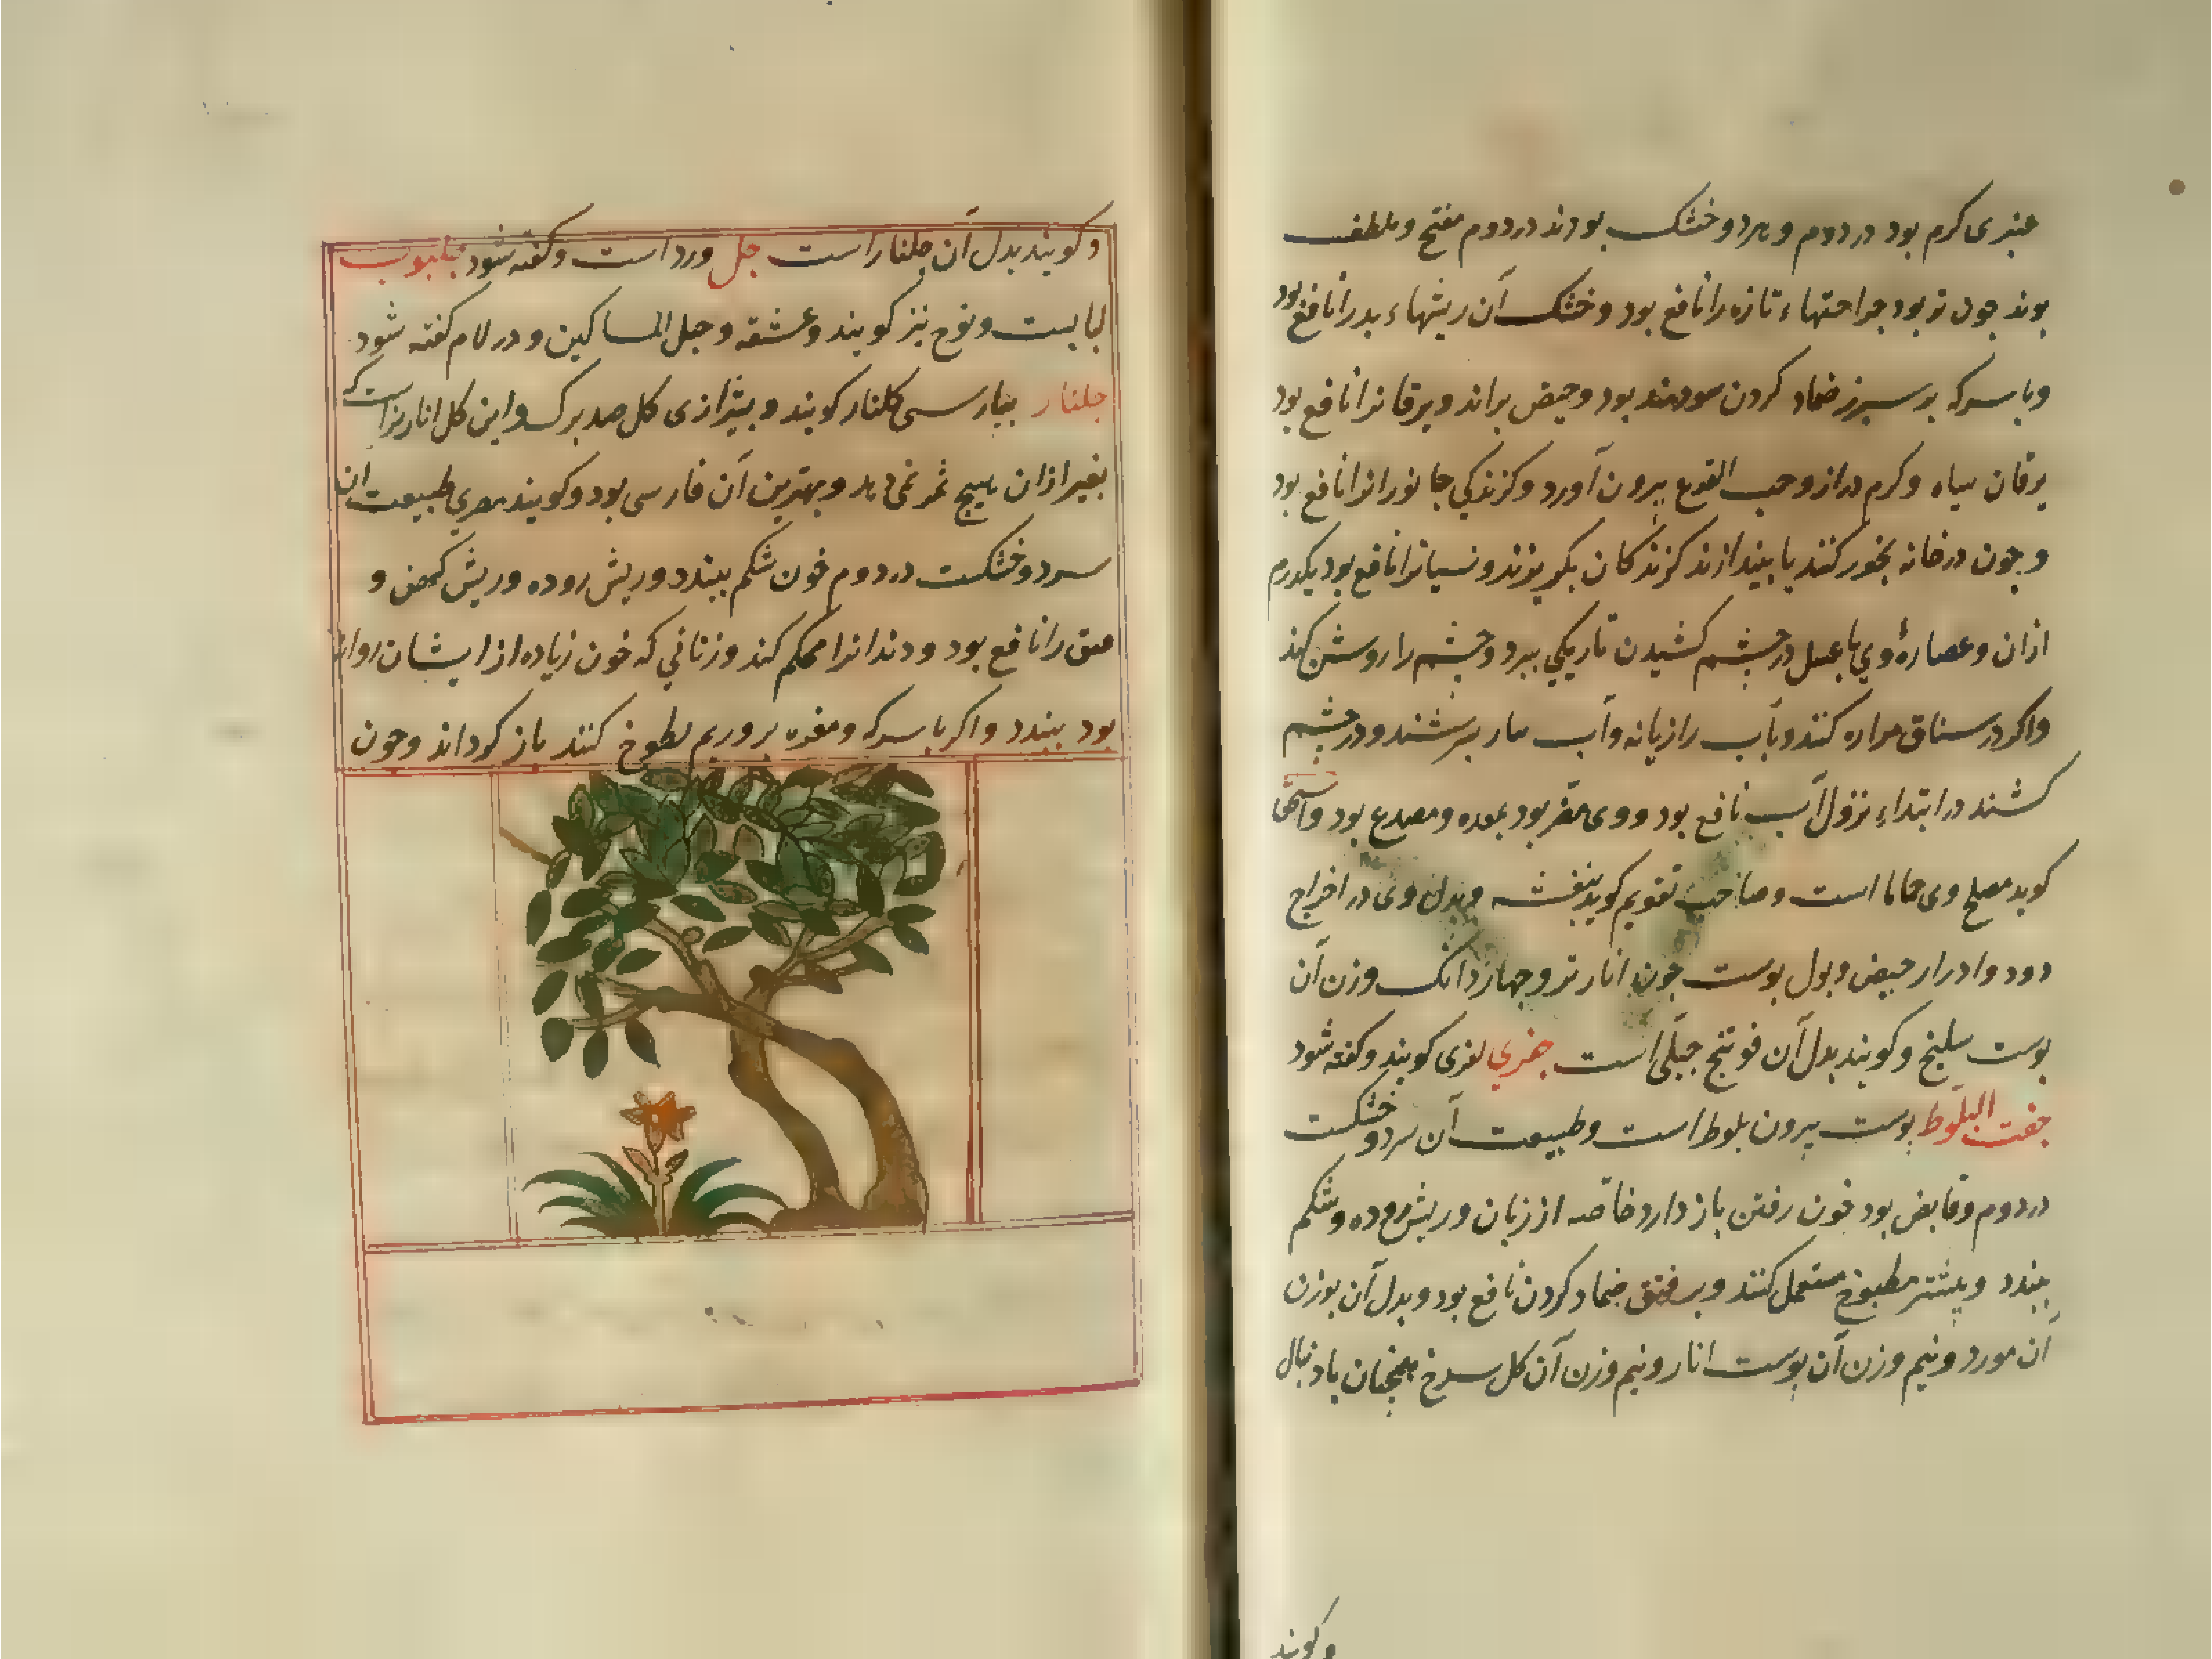 عنبری کرم بود در دوم و هر دو خشک بودند در دوم مفتح و ملطف
بوند جون تر بود جراحتهاء تازه را نافع بود و خشک آن ریشهاء بد را نافع بود
و با سرکه بر سپرز ضماد کردن سودمند بود و حیض براند و یرقانرا نافع بود
یرقان سیاه و کرم دراز و حب القرع بیرون آورد و کزندکی جانورانرا نافع بود
و جون در خانه بخور کنند یا بیندازند کزندکان بکریزند و نسیانرا نافع بود یکدرم
ازان و عصارۀ وی با عسل در چشم کشیدن تاریکی ببرد و چشم را روشن کند
واکر در سناق مراره کنند و بآب رازیانه و آب بسرشند و در چشم
کشند در ابتداء نزول آب نافع بود و وی مضر بود بمعده و مصدع بود و اسحق
کوید مصلح وی حماما است و صاحب تقویم کوید بنفشه و بدل وی در اخراج
دود و ادرار حیض و بول پوست جون انار تر و جهار دانک وزن آن
پوست سلیخ و کویند بدل آن فوتنج جبلی است جفری لفری کویند و کفته شود
جفت البلّوط پوست بیرون بلوط است و طبیعت آن سرد و خشکست
در دوم و قابض بود خون رفتن باز دارد خاصّه از زنان و ریش روده و شکم
ببندد و بیشتر مطبوخ مستعمل کنند و بر فتق ضماد کردن نافع بود و بدل آن بوزن
آن مورد و نیم وزن آن پوست انار و نیم وزن آن کل سرخ همچنان با دنبال
و کویند
و کویند بدل آن جلنار است جل ورد است و کفته شود جلبوب
لبابست و نوع نیز کویند و عشقه و حبل المساکین و در لام کفته شود
جلنار بپارسی کلنار کویند و بشیرازی کل صد برک و این کل انار نر است که
بغیر ازان هیچ ثمر نمی دهد و بهترین آن فارسی بود و کویند مصری طبیعت ان
سرد و خشکست در دوم خون شکم ببندد و ریش روده و ریش کهن و
عتق را نافع بود و دندانرا محکم کند و زنانی که خون زیاده از ایشان روان
بود ببندد و اکر با سرکه و مغره بر ورم لطوخ کنند باز کرداند وجون